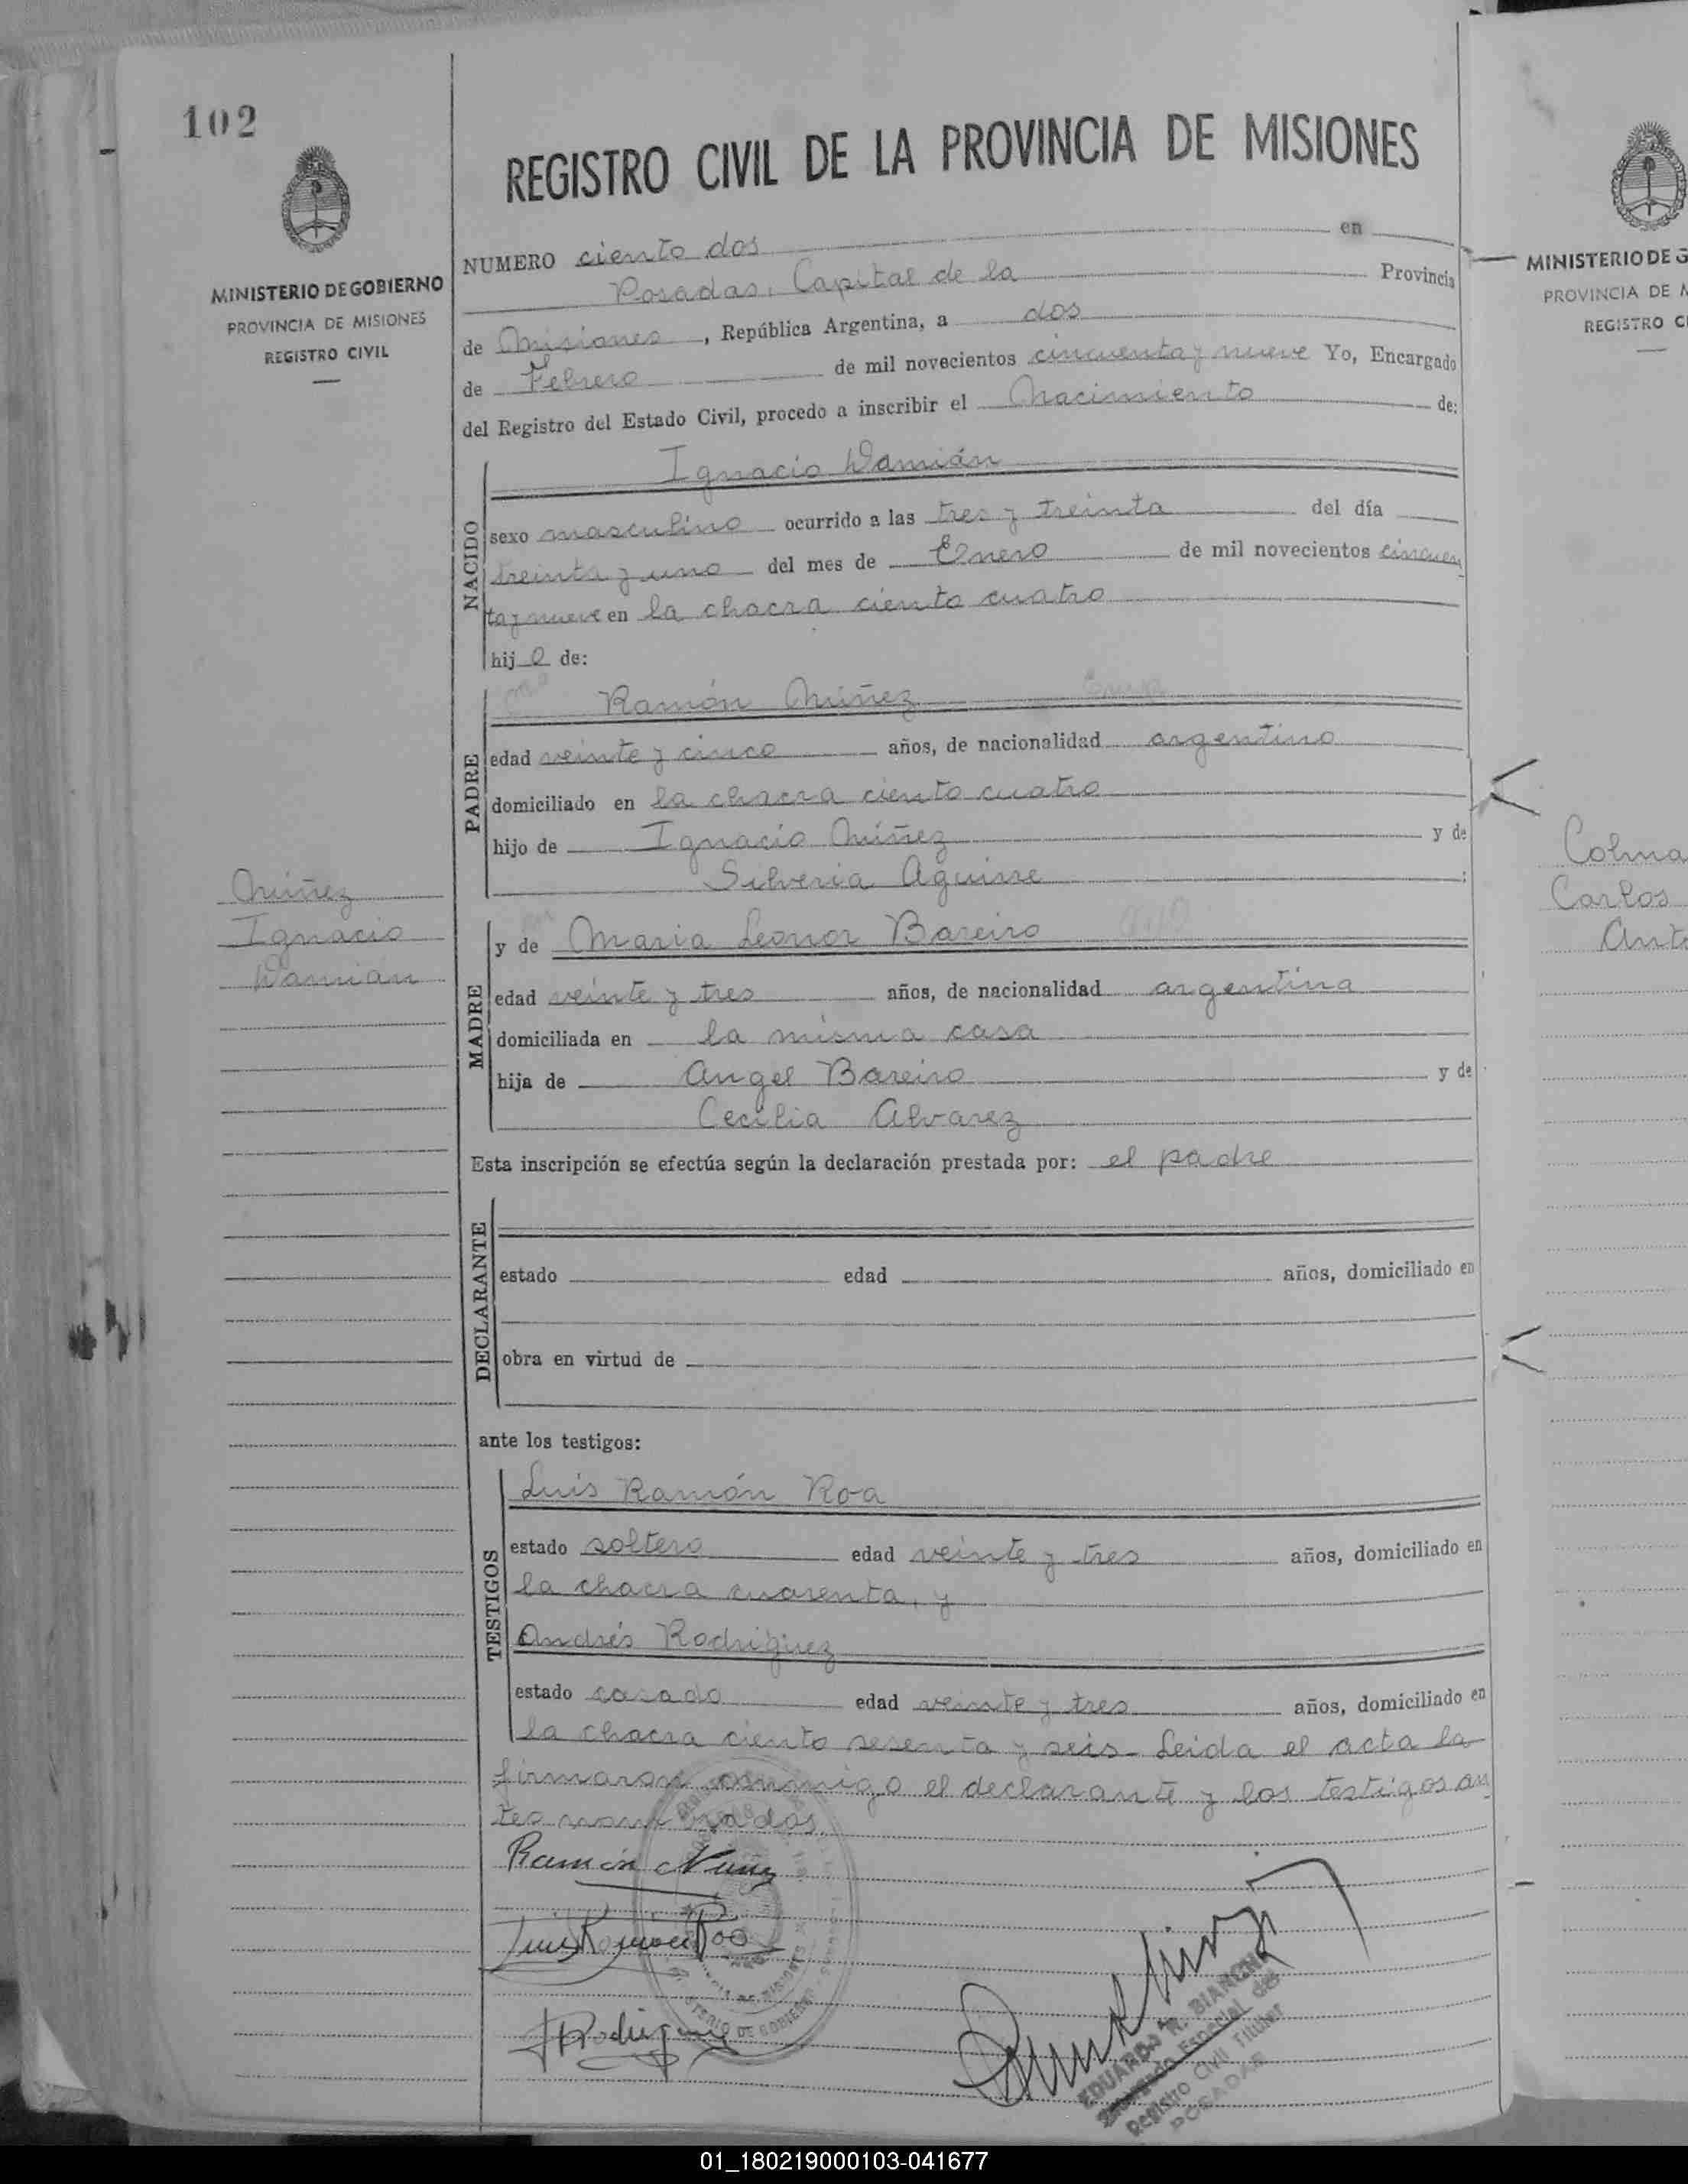 102
REGISTRO CIVIL DE LA PROVINCIA DE MISIONES
MINISTERIO DE GOBIERNO
PROVINCIA DE MISIONES
REGISTRO CIVIL
NUMERO ciento dos en
Posadas, Capital de la Provincia
de Misiones, República Argentina, a dos
de Febrero de mil novecientos cincuenta y nueve Yo, Encargado
del Registro del Estado Civil, procedo a inscribir el Nacimiento de:
NACIDO
Ignacio Damián
sexo masculino ocurrido a las tres y treinta del día
treinta y uno del mes de Enero de mil novecientos cincuen
ta y nueve en la chacra ciento cuatro
hijo de:
PADRE
Ramón Núñez
edad veinte y cinco años, de nacionalidad argentino
domiciliado en la chacra ciento cuatro
hijo de Ignacio Núñez y de
Silveria Aguirre;
Núñez
Ignacio
Damián
MADRE
y de Maria Leonor Bareiro
edad veinte y tres años, de nacionalidad argentina
domiciliada en la misma casa
hija de Angel Bareiro y de
Cecilia Alvarez
Esta inscripción se efectúa según la declaración prestada por: el padre
DECLARANTE
estado edad años, domiciliado en
obra en virtud de
ante los testigos:
TESTIGOS
Luis Ramón Roa
estado soltero edad veinte y tres años, domiciliado en
la chacra cuarenta, y
Andrés Rodríguez
estado casado edad veinte y tres años, domiciliado en
la chacra ciento sesenta y seis- Leida el acta la
firmaron conmigo el declarante y los testigos an
tes nombrados.
Ramón Nuñez
Luis Ramon Roa
Rodriguez
EDUARDO R. BIANCHI
Registro Civil Titular
POSADAS
MINISTERIO DE G
PROVINCIA DE M
REGISTRO CI
Colma
Carlos
Ant
01_180219000103-041677